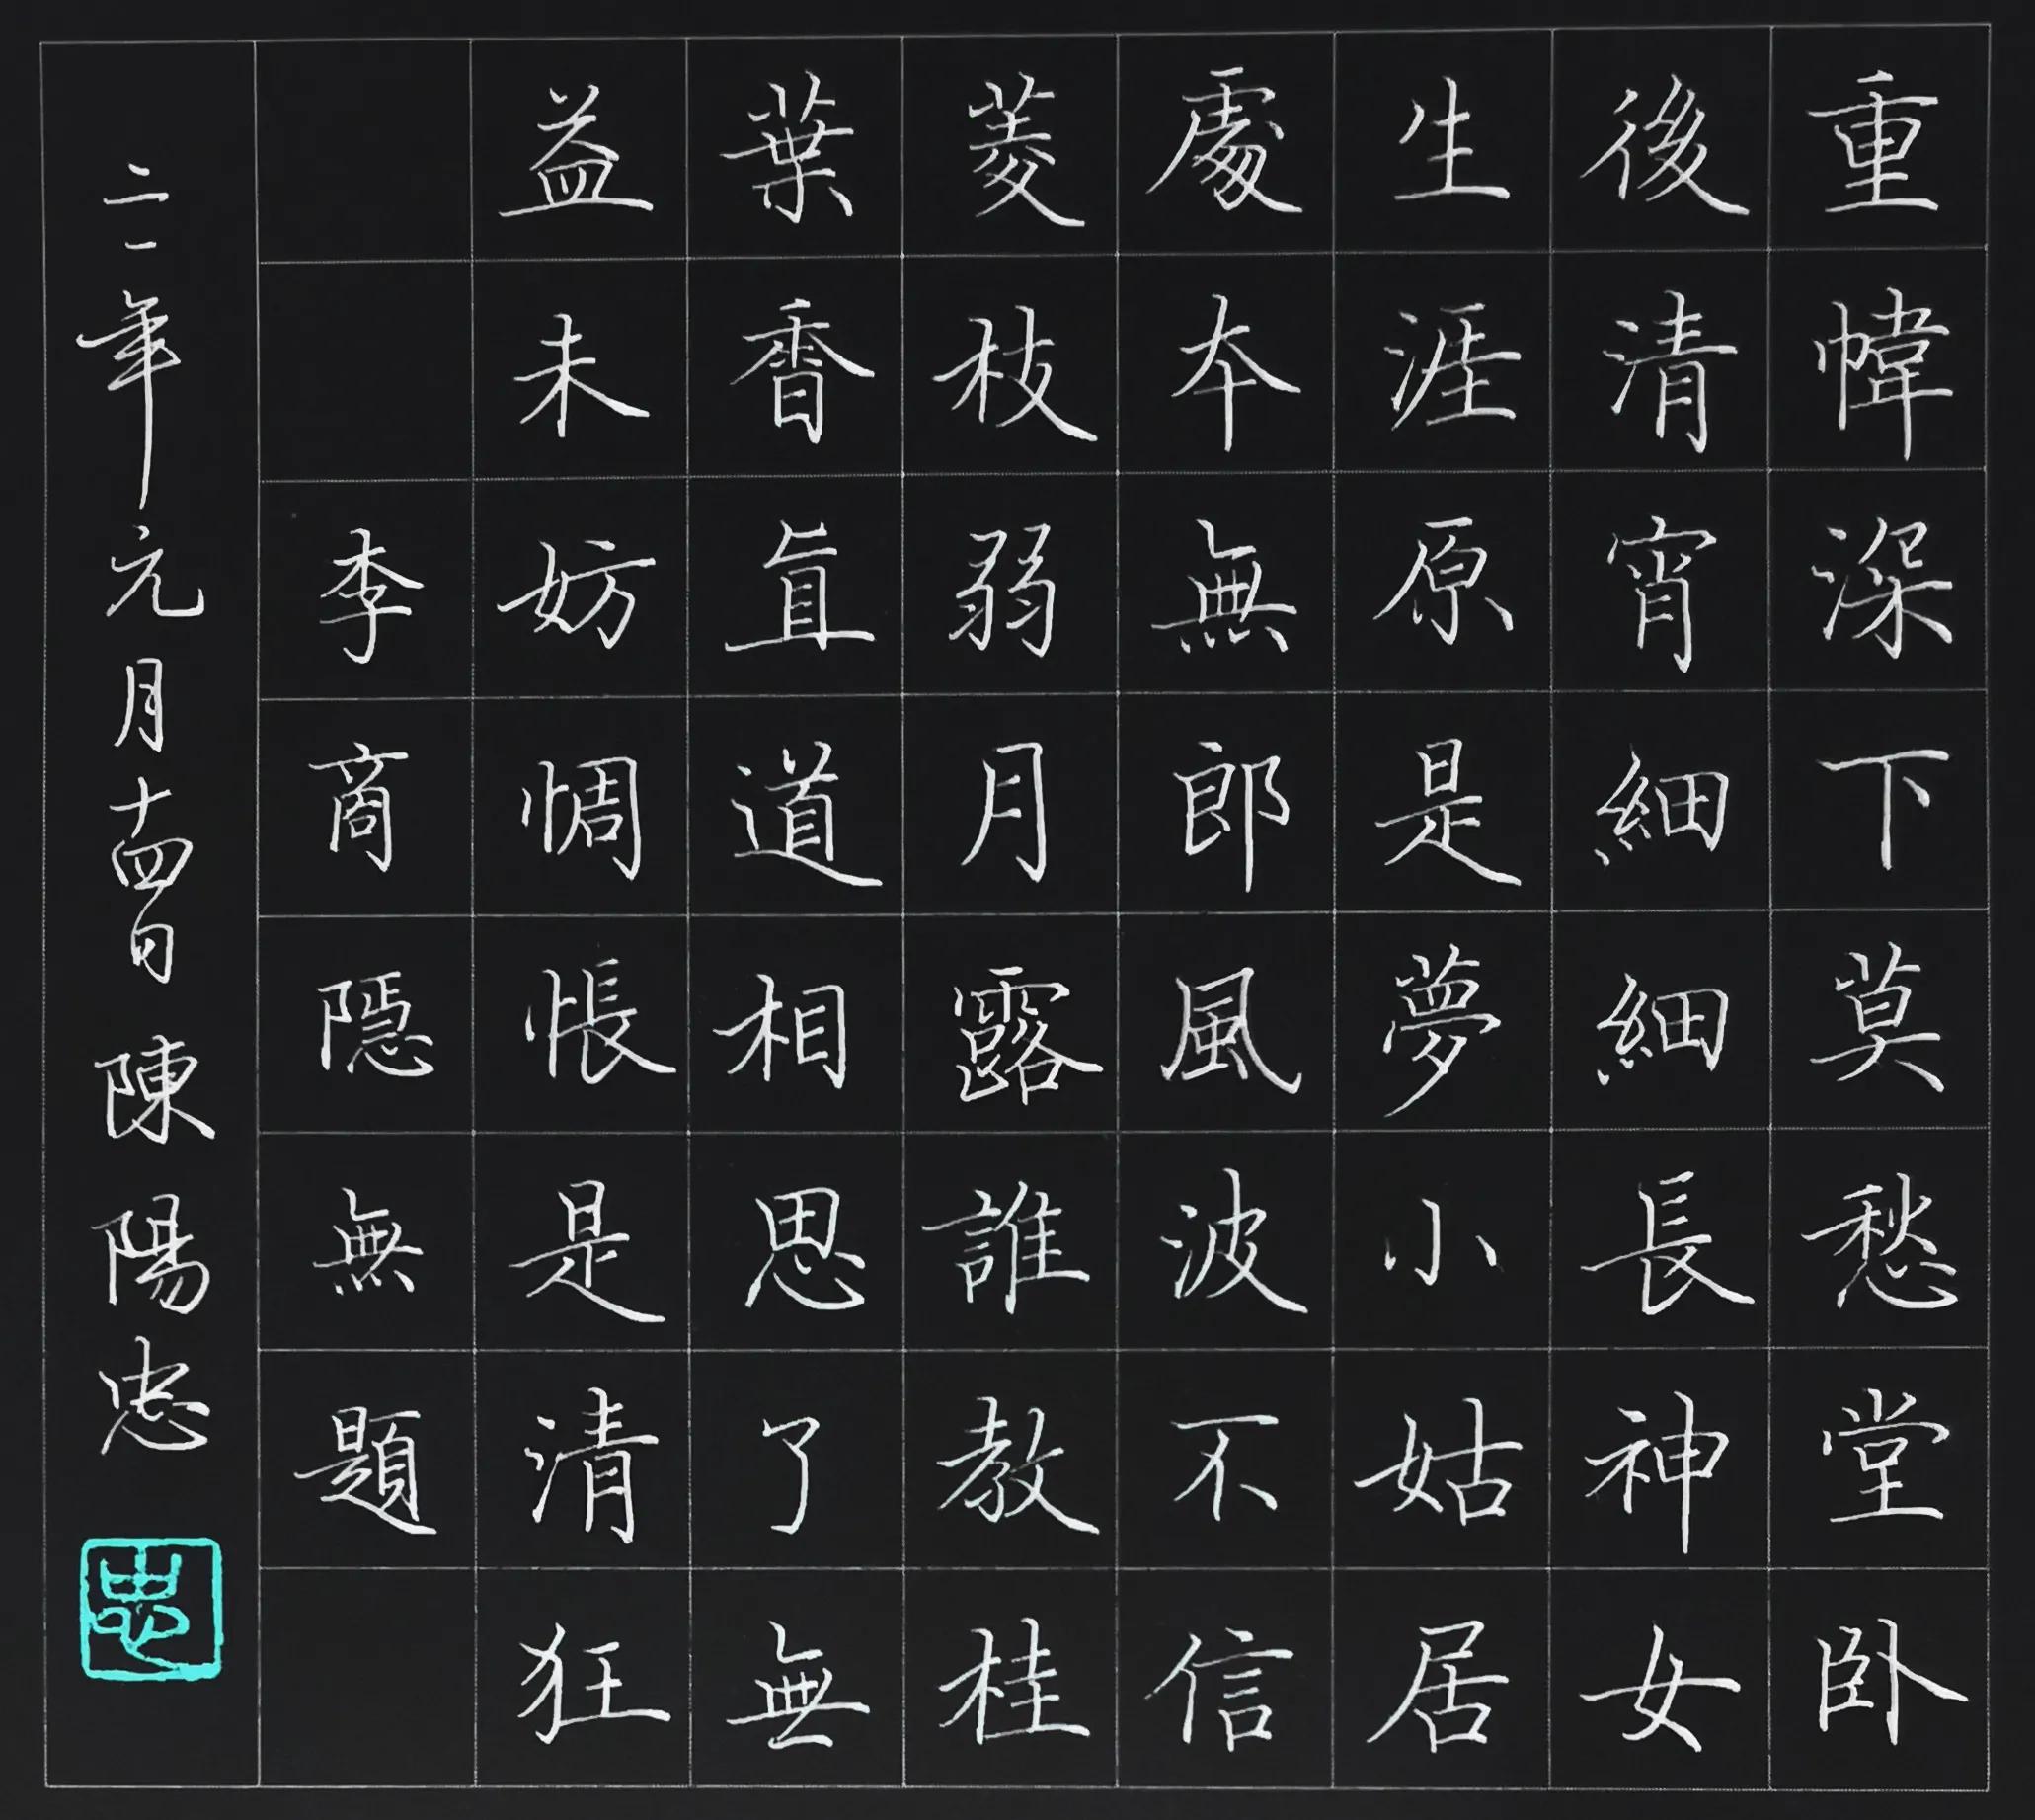 重幃深下莫愁堂卧
後清宵細細長神女
生涯原是夢小姑居
處本無郎風波不信
菱枝弱月露誰教桂
葉香直道相思了無
益未妨惆悵是清狂
李商隱無題
二一年元月十四日陳陽忠
忠